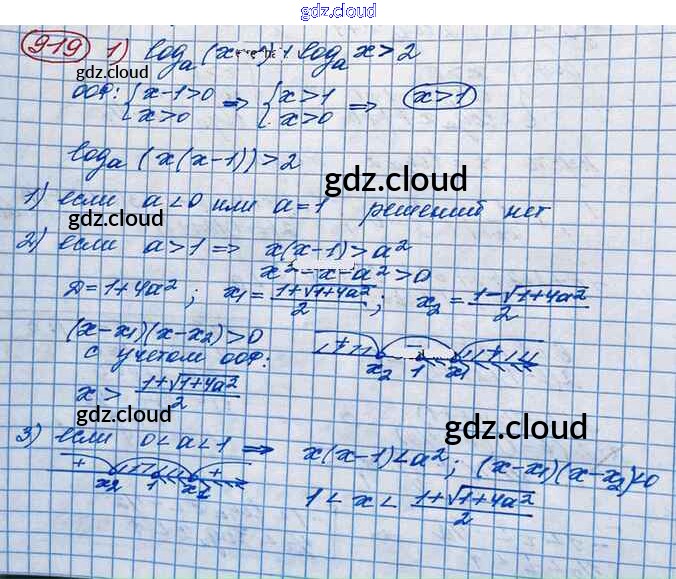 gdz.cloud
919 1) logₐ(x-1)+logₐx>2
gdz.cloud
ООФ: {x-1>0 x>0 ⇒ {x>1 x>0 ⇒ x>1
logₐ(x(x-1))>2
gdz.cloud
1) если a<0 или a=1 решений нет
gdz.cloud
2) если a>1 ⇒ x(x-1)>a²
x²-x-a²>0
Д=1+4a²; x₁=(1+√1+4a²)/2; x₂=(1-√1+4a²)/2
(x-x₁)(x-x₂)>0
с учетом ООФ:
+ - +
x₂ 1 x₁
x> (1+√1+4a²)/2
gdz.cloud
gdz.cloud
3) если 0<a<1 ⇒ x(x-1)<a²; (x-x₁)(x-x₂)<0
+ +
x₂ 1
1<x< (1+√1+4a²)/2
gdz.cloud